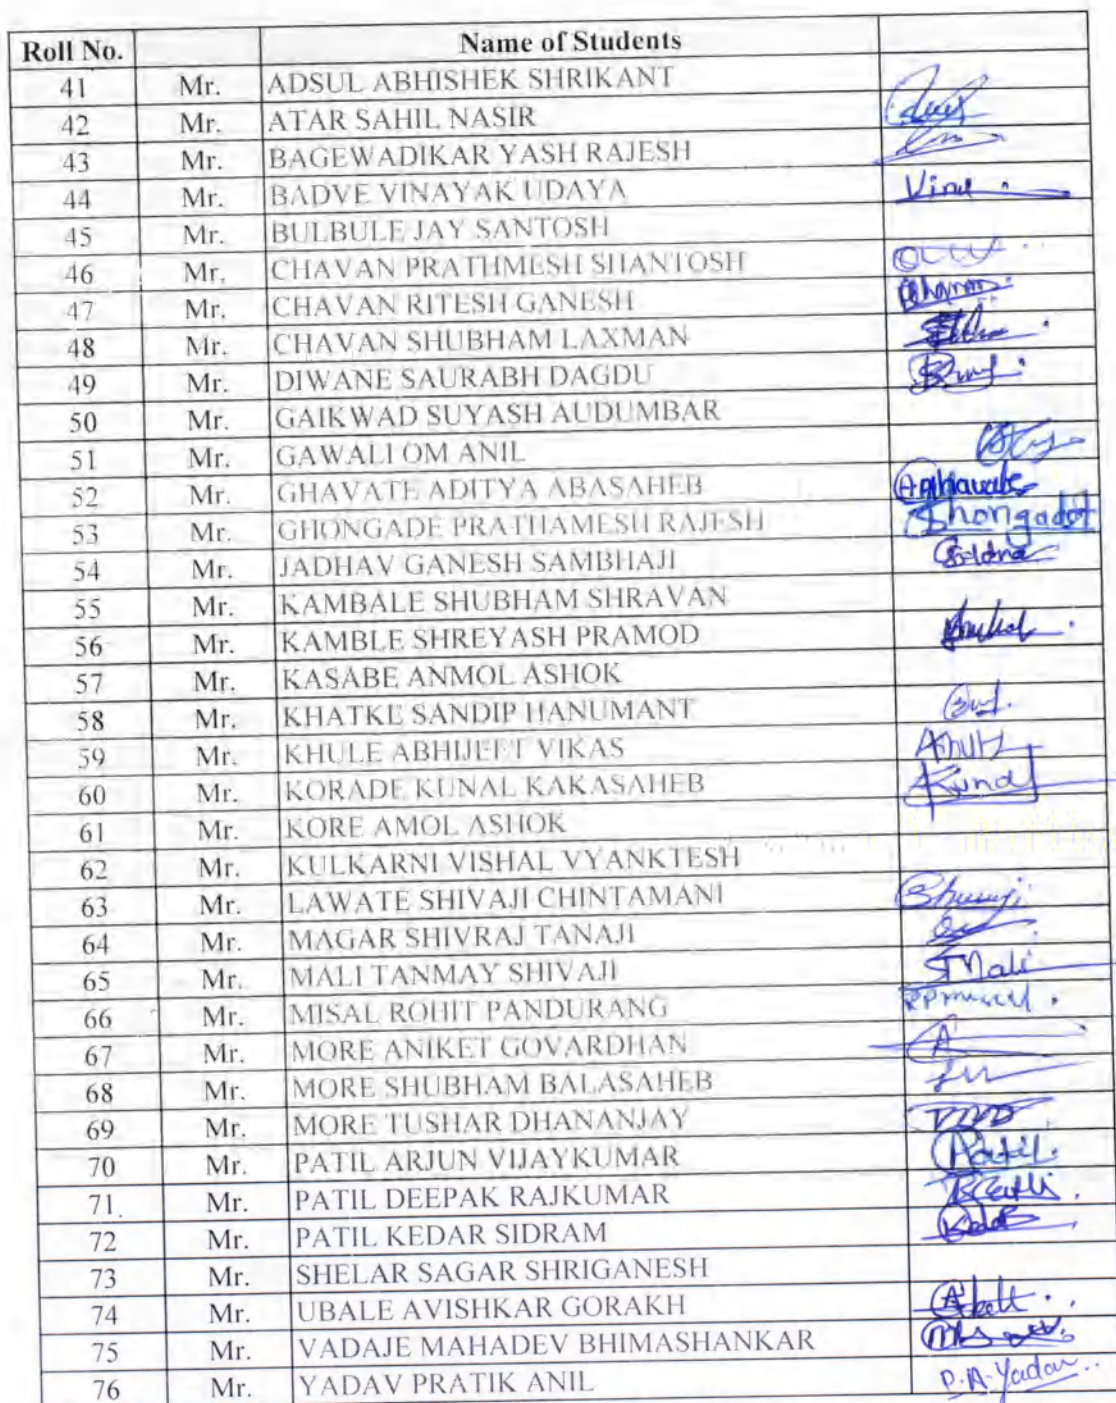 Roll No. Name of Students
41 Mr. ADSUL ABHISHEK SHRIKANT
42 Mr. ATAR SAHIL NASIR
43 Mr. BAGEWADIKAR YASH RAJESH
44 Mr. BADVE VINAYAK UDAYA
45 Mr. BULBULE JAY SANTOSH
46 Mr. CHAVAN PRATHMESH SHANTOSH
47 Mr. CHAVAN RITESH GANESH
48 Mr. CHAVAN SHUBHAM LAXMAN
49 Mr. DIWANE SAURABH DAGDU
50 Mr. GAIKWAD SUYASH AUDUMBAR
51 Mr. GAWALI OM ANIL
52 Mr. GHAVATE ADITYA ABASAHEB
53 Mr. GHONGADE PRATHAMESH RAJESH
54 Mr. JADHAV GANESH SAMBHAJI
55 Mr. KAMBALE SHUBHAM SHRAVAN
56 Mr. KAMBLE SHREYASH PRAMOD
57 Mr. KASABE ANMOL ASHOK
58 Mr. KHATKE SANDIP HANUMANT
59 Mr. KHULE ABHIJEET VIKAS
60 Mr. KORADE KUNAL KAKASAHEB Kunal
61 Mr. KORE AMOL ASHOK
62 Mr. KULKARNI VISHAL VYANKTESH
63 Mr. LAWATE SHIVAJI CHINTAMANI
64 Mr. MAGAR SHIVRAJ TANAJI
65 Mr. MALI TANMAY SHIVAJI TMali
66 Mr. MISAL ROHIT PANDURANG
67 Mr. MORE ANIKET GOVARDHAN
68 Mr. MORE SHUBHAM BALASAHEB
69 Mr. MORE TUSHAR DHANANJAY
70 Mr. PATIL ARJUN VIJAYKUMAR
71 Mr. PATIL DEEPAK RAJKUMAR
72 Mr. PATIL KEDAR SIDRAM
73 Mr. SHELAR SAGAR SHRIGANESH
74 Mr. UBALE AVISHKAR GORAKH
75 Mr. VADAJE MAHADEV BHIMASHANKAR
76 Mr. YADAV PRATIK ANIL P.A.Yadav